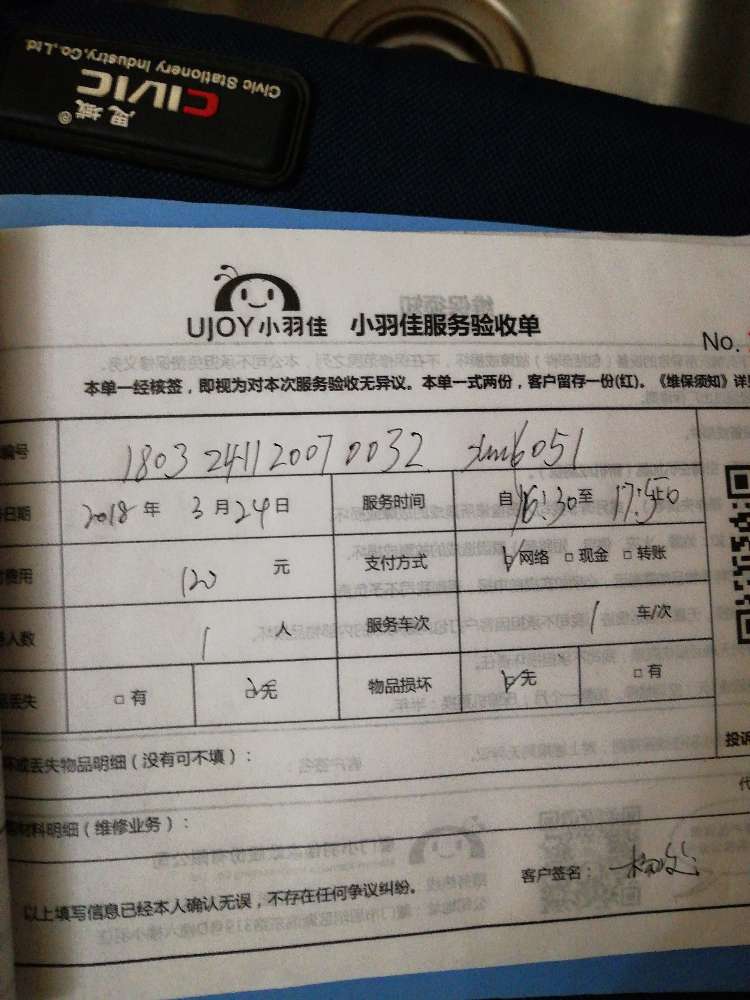 Civic Stationery Industry.Co.,Ltd.
CIVIC
思域®
UJOY小羽佳 小羽佳服务验收单
No.
本单一经核签，即视为对本次服务验收无异议。本单一式两份，客户留存一份(红)。《维保须知》详
编号 1803241120070032
日期 2018年3月24日 服务时间 自16:30至17:50
费用 120元 支付方式 ☑网络 □现金 □转账
人数 1人 服务车次 1车/次
丢失 □有 ☑无 物品损坏 ☑无 □有
坏或丢失物品明细（没有可不填）：
投诉
材料明细（维修业务）：
以上填写信息已经本人确认无误，不存在任何争议纠纷。 客户签名：